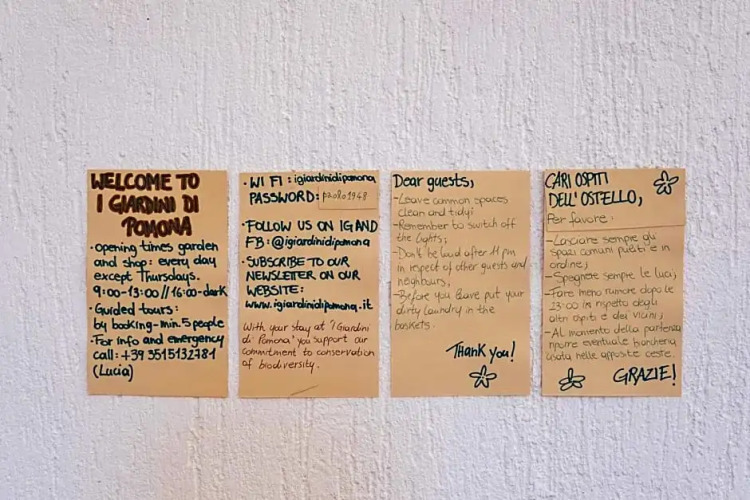 WELCOME TO
I GIARDINI DI
POMONA
• Opening times garden
and shop: every day
except Thursdays.
9:00-13:00 // 16:00-dark
• Guided tours:
by booking - min. 5 people
• For info and emergency
call: +39 3515132781
(Lucia)
• WI FI: igiardinidipomona
PASSWORD: p20801948
• FOLLOW US ON IG AND
FB: @igiardinidipomona
• SUBSCRIBE TO OUR
NEWSLETTER ON OUR
WEBSITE:
www.igiardinidipomona.it
With your stay at "I Giardini
di Pomona" you support our
commitment to conservation
of biodiversity.
Dear guests,
- Leave common spaces
clean and tidy;
- Remember to switch off
the lights;
- Don't be loud after 11 pm
in respect of other guests and
neighbours;
- Before you leave put your
dirty laundry in the
baskets.
Thank you!
CARI OSPITI
DELL'OSTELLO,
Per favore:
- Lasciare sempre gli
spazi comuni puliti e in
ordine;
- Spegnere sempre le luci;
- Fare meno rumore dopo le
23:00 in rispetto degli
altri ospiti e dei vicini;
- Al momento della partenza
riporre eventuale biancheria
usata nelle apposite ceste.
GRAZIE!